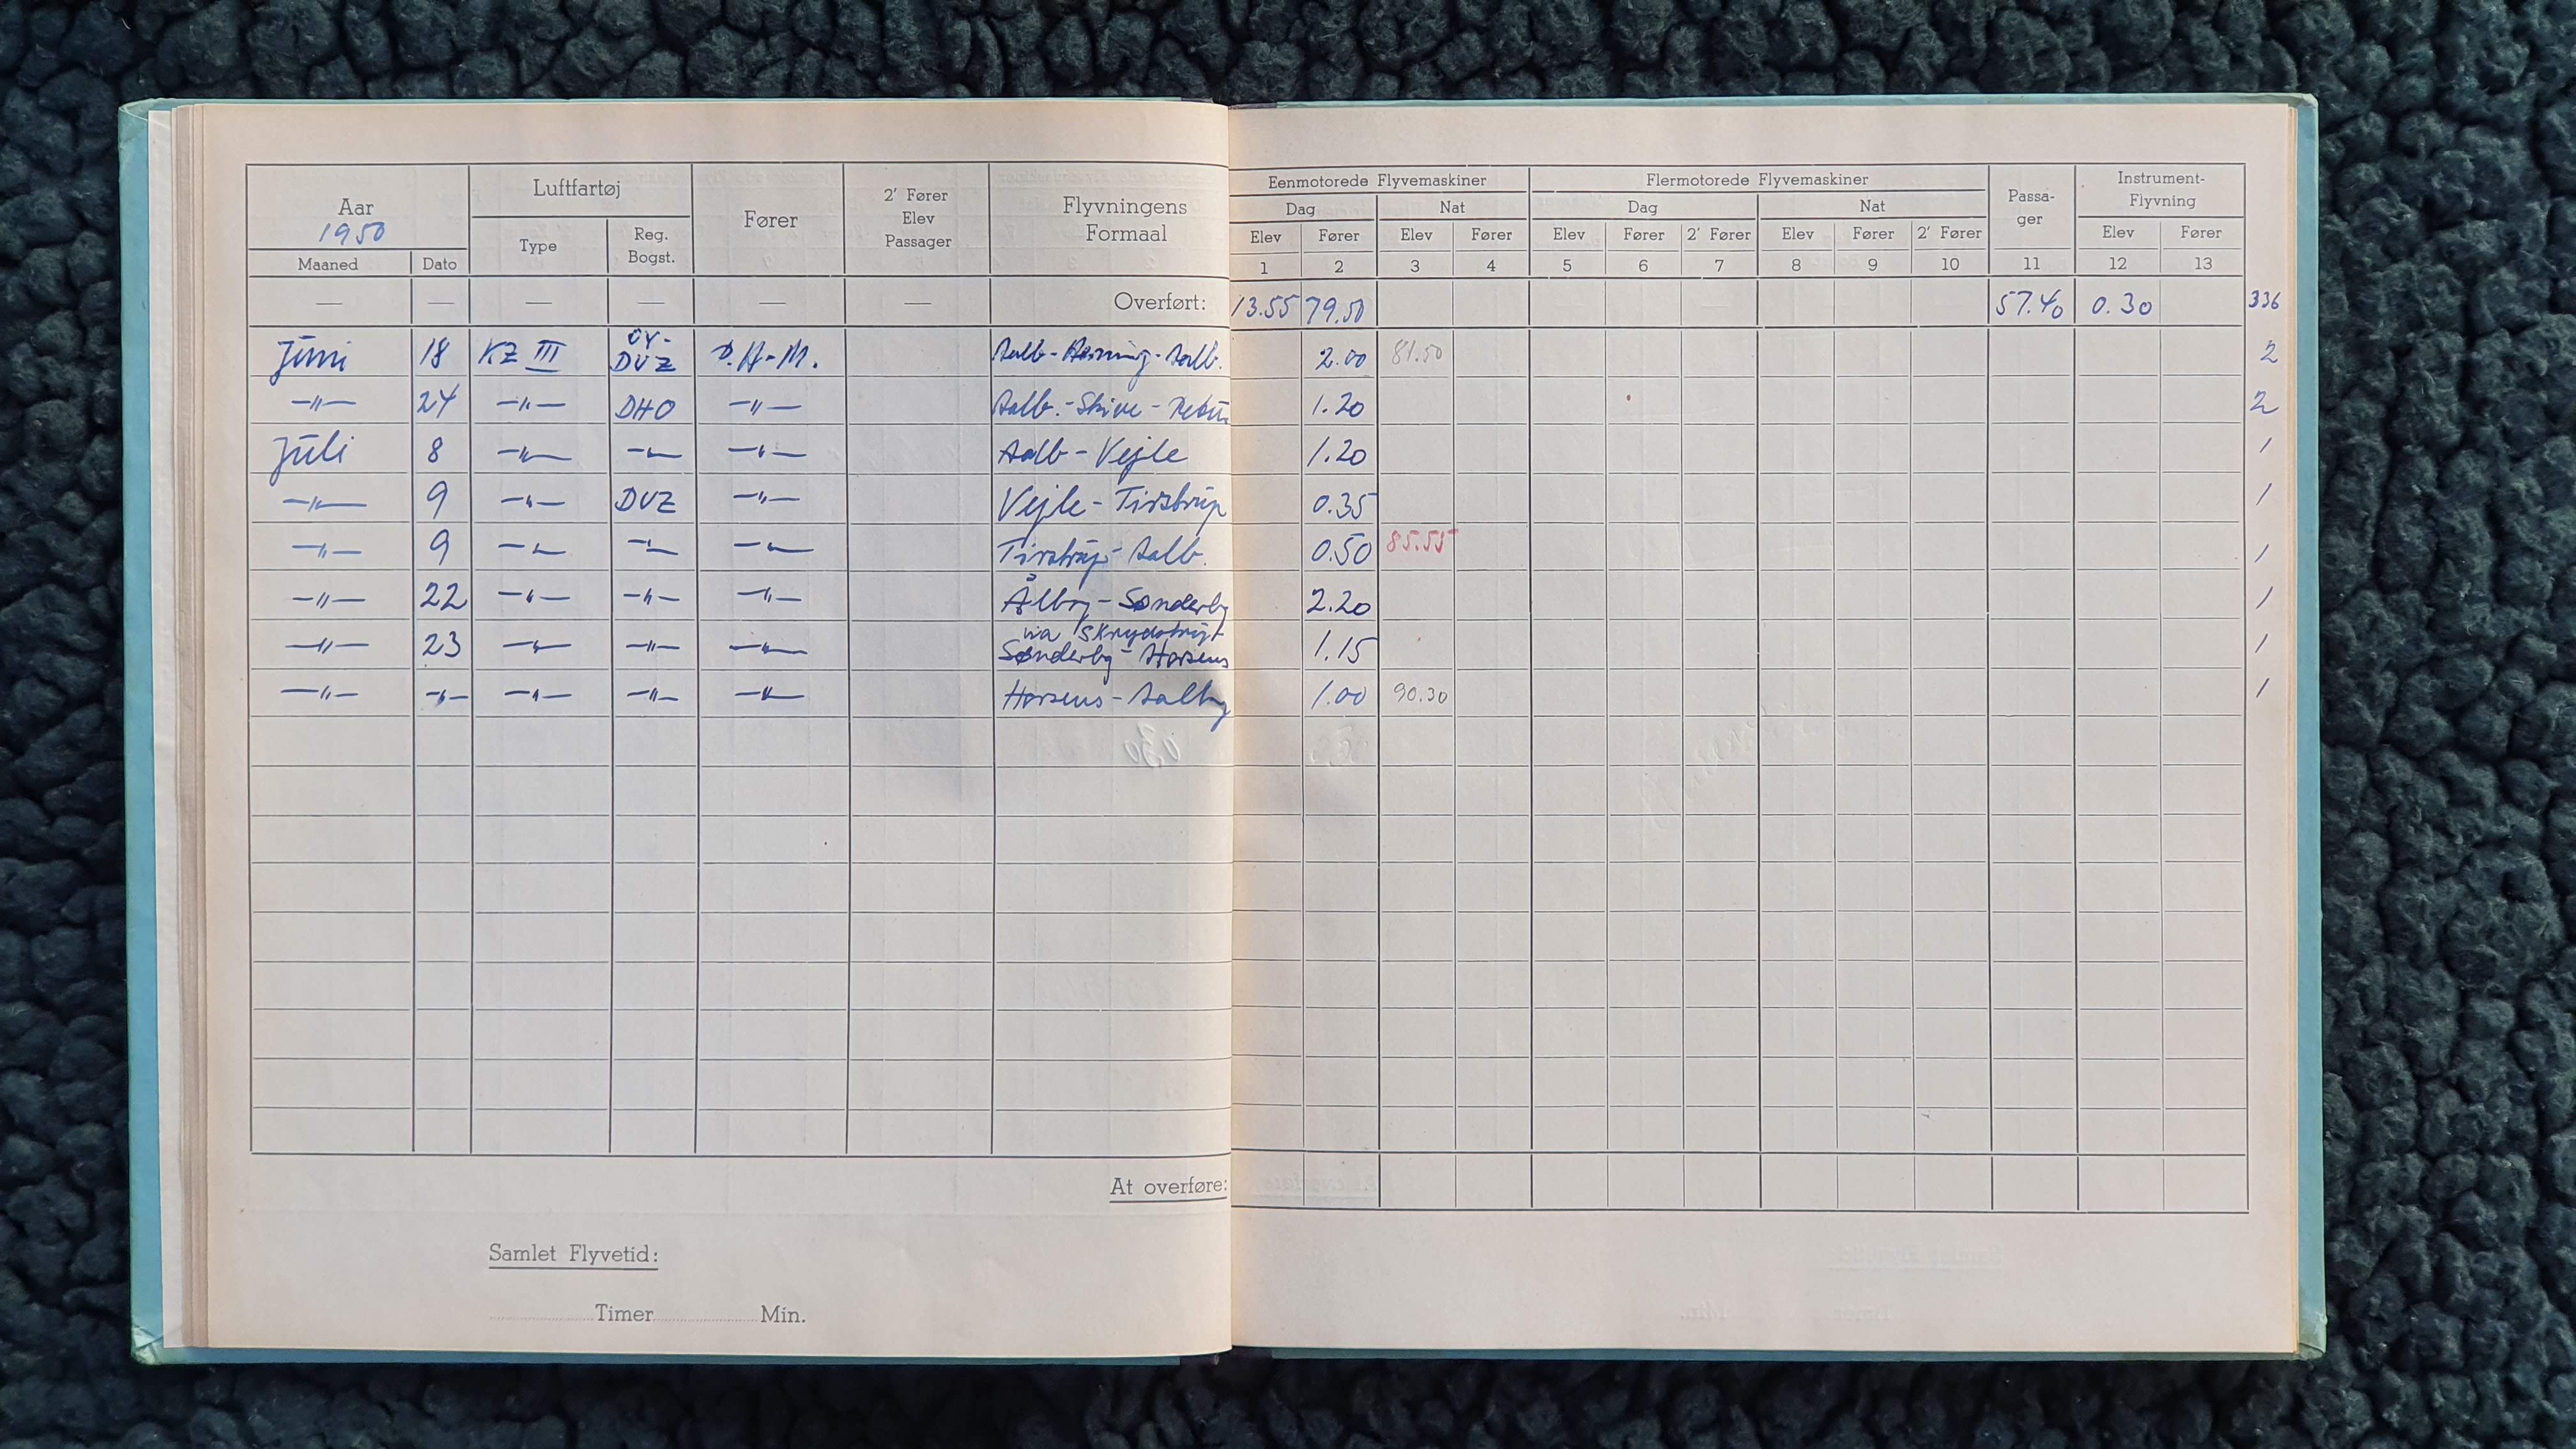 Aar Luftfartøj Fører 2' Fører Elev Passager Flyvningens Formaal Eenmotorede Flyvemaskiner Flermotorede Flyvemaskiner Passa-ger Instrument-Flyvning
1950 Type Reg. Bogst. Dag Nat Dag Nat
Maaned Dato Elev Fører Elev Fører Elev Fører 2' Fører Elev Fører 2' Fører Elev Fører
1 2 3 4 5 6 7 8 9 10 11 12 13
— — — — — — Overført: 13.55 79.50 57.40 0.30 336
Juni 18 KZ III OY-DVZ P.H-M. Aalb-Herning-Aalb. 2.00 81.50 2
—"— 24 —"— DHO —"— Aalb.-Skive-Retur 1.20 2
Juli 8 —"— —"— —"— Aalb-Vejle 1.20 1
—"— 9 —"— DVZ —"— Vejle-Tirstrup 0.35 1
—"— 9 —"— —"— —"— Tirstrup-Aalb. 0.50 85.55 1
—"— 22 —"— —"— —"— Ålbg-Sønderbg 2.20 1
via Skrydstrup
—"— 23 —"— —"— —"— Sønderbg-Horsens 1.15 1
—"— —"— —"— —"— —"— Horsens-Aalbg 1.00 90.30 1
At overføre:
Samlet Flyvetid:
Timer Min.